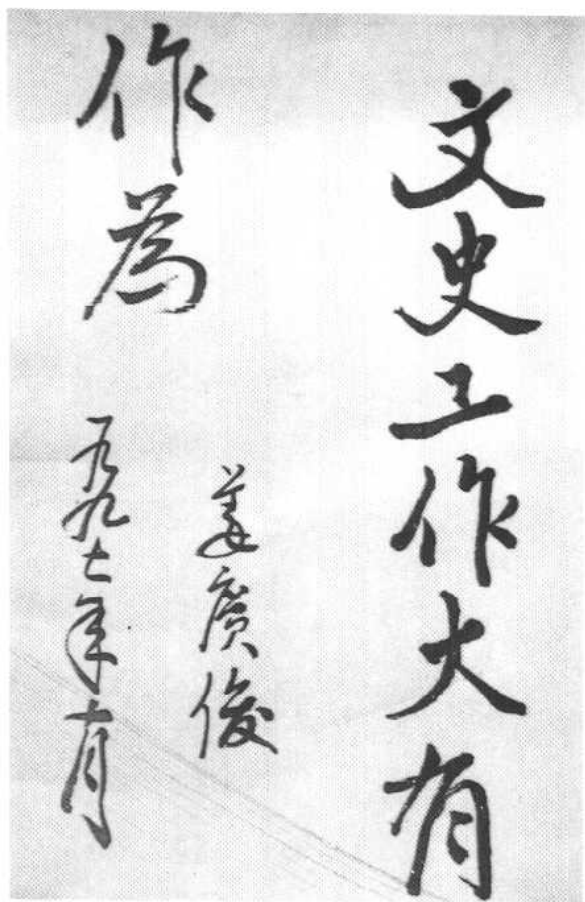 文史工作大有
作為
姜廣俊
一九九七年十月